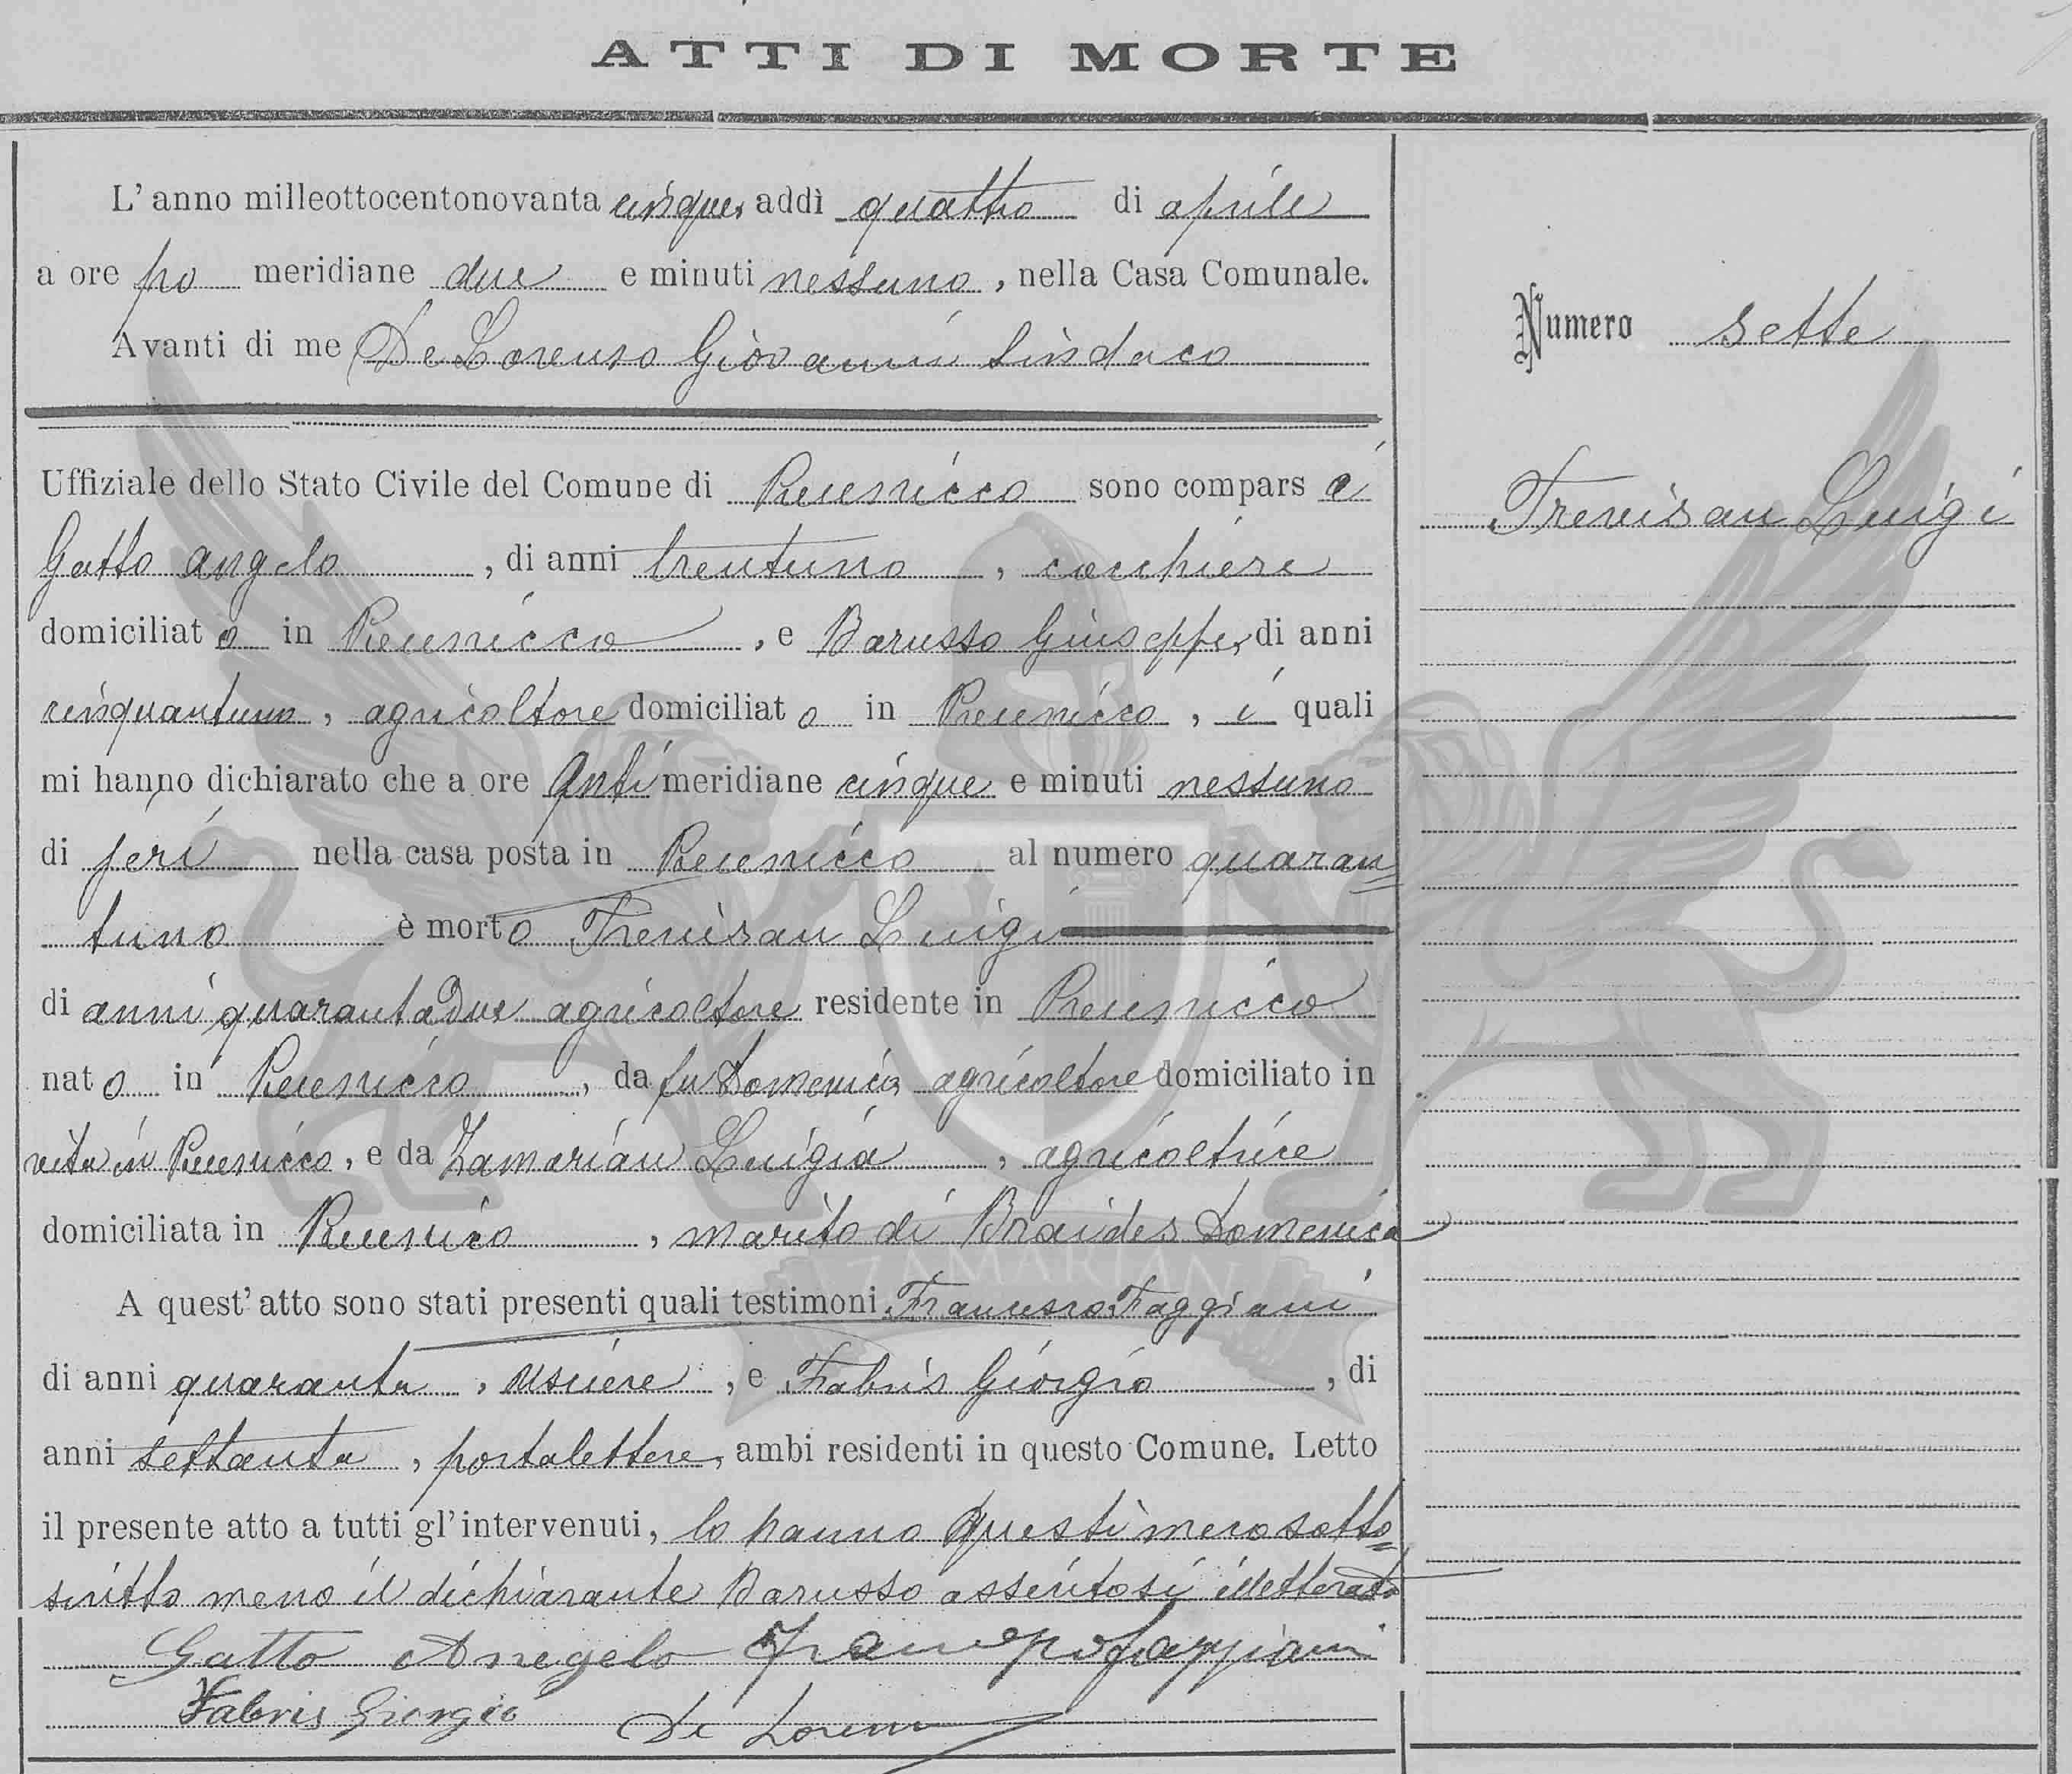 ATTI DI MORTE
L' anno milleottocentonovanta cinque, addì quattro di aprile
a ore po meridiane due e minuti nessuno, nella Casa Comunale.
Numero sette
Avanti di me De Lorenzo Giovanni Sindaco
Uffiziale dello Stato Civile del Comune di Precenicco sono compars i
Trevisan Luigi
Gatto Angelo, di anni trentuno, cocchiere
domiciliat o in Precenicco, e Barusso Giuseppe, di anni
cinquantuno, agricoltore domiciliat o in Precenicco, i quali
mi hanno dichiarato che a ore anti meridiane cinque e minuti nessuno
di jeri nella casa posta in Precenicco al numero quaran=
tuno è morto Trevisan Luigi
di anni quarantadue agricoltore residente in Precenicco
nat o in Precenicco, da fu Domenico, agricoltore domiciliato in
vita in Precenicco, e da Zamarian Luigia, agricoltrice
domiciliata in Precenico, marito di Braides Domenica
ZAMARIAN
A quest' atto sono stati presenti quali testimoni Francesco Faggiani
di anni quaranta, usciere, e Fabris Giorgio, di
anni settanta, portalettere, ambi residenti in questo Comune. Letto
il presente atto a tutti gl'intervenuti, lo hanno questi meco sotto=
scritto meno il dichiarante Barusso asseritosi illetterato
Gatto Anegelo Faggiani
Fabris Giorgio De Lorenzo